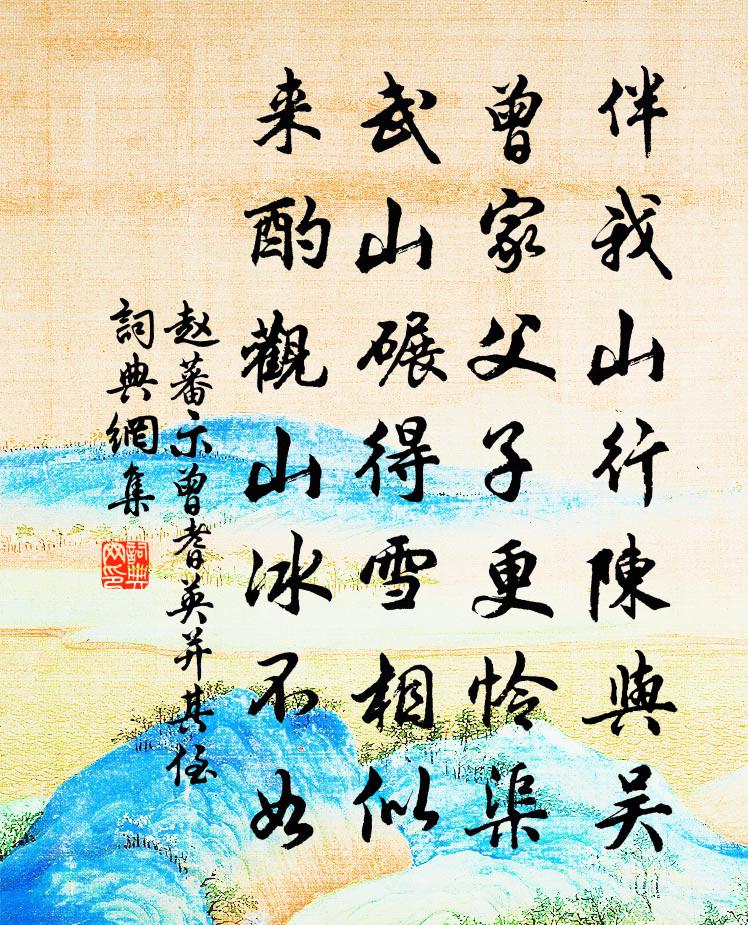 伴我山行陳與吴
曾家父子更怜渠
武山碾得雪相似
来酌觀山冰不如
赵蕃示曾耆英并其侄
詞典網集
詞典